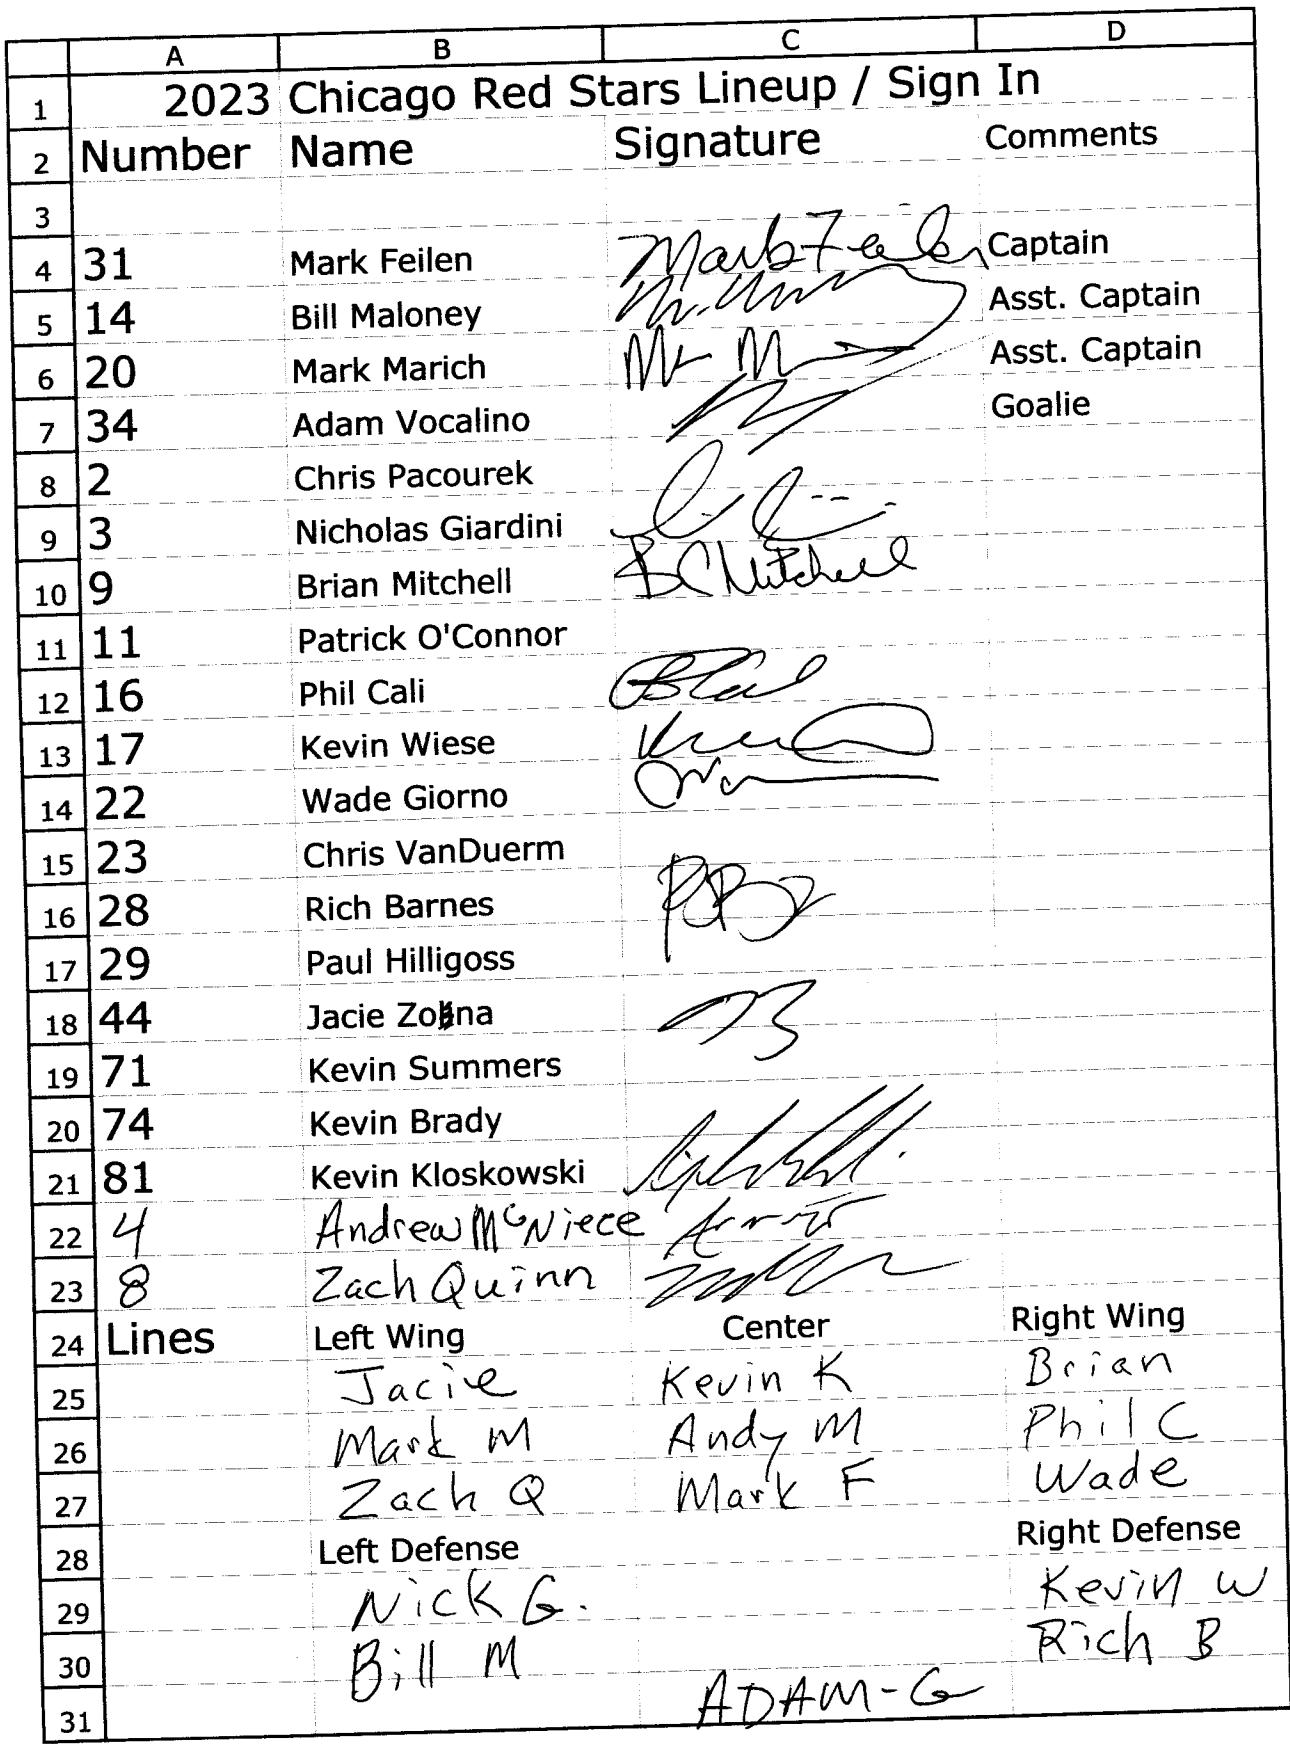 A B C D
1 2023 Chicago Red Stars Lineup / Sign In
2 Number Name Signature Comments
3
4 31 Mark Feilen Mark Feilen Captain
5 14 Bill Maloney Asst. Captain
6 20 Mark Marich Asst. Captain
7 34 Adam Vocalino Goalie
8 2 Chris Pacourek
9 3 Nicholas Giardini
10 9 Brian Mitchell BC Mitchell
11 11 Patrick O'Connor
12 16 Phil Cali
13 17 Kevin Wiese
14 22 Wade Giorno
15 23 Chris VanDuerm
16 28 Rich Barnes
17 29 Paul Hilligoss
18 44 Jacie
19 71 Kevin Summers
20 74 Kevin Brady
21 81 Kevin Kloskowski
22 4 Andrew McNiece
23 8 Zach Quinn
24 Lines Left Wing Center Right Wing
25 Jacie Kevin K Brian
26 Mark M Andy M Phil C
27 Zach Q Mark F Wade
28 Left Defense Right Defense
29 Nick G. Kevin W
30 Bill M Rich B
31 ADAM-G